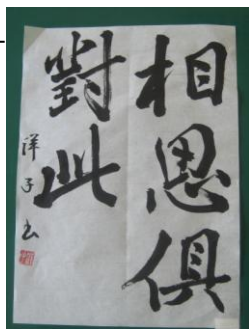 相思俱
對此
洋子书